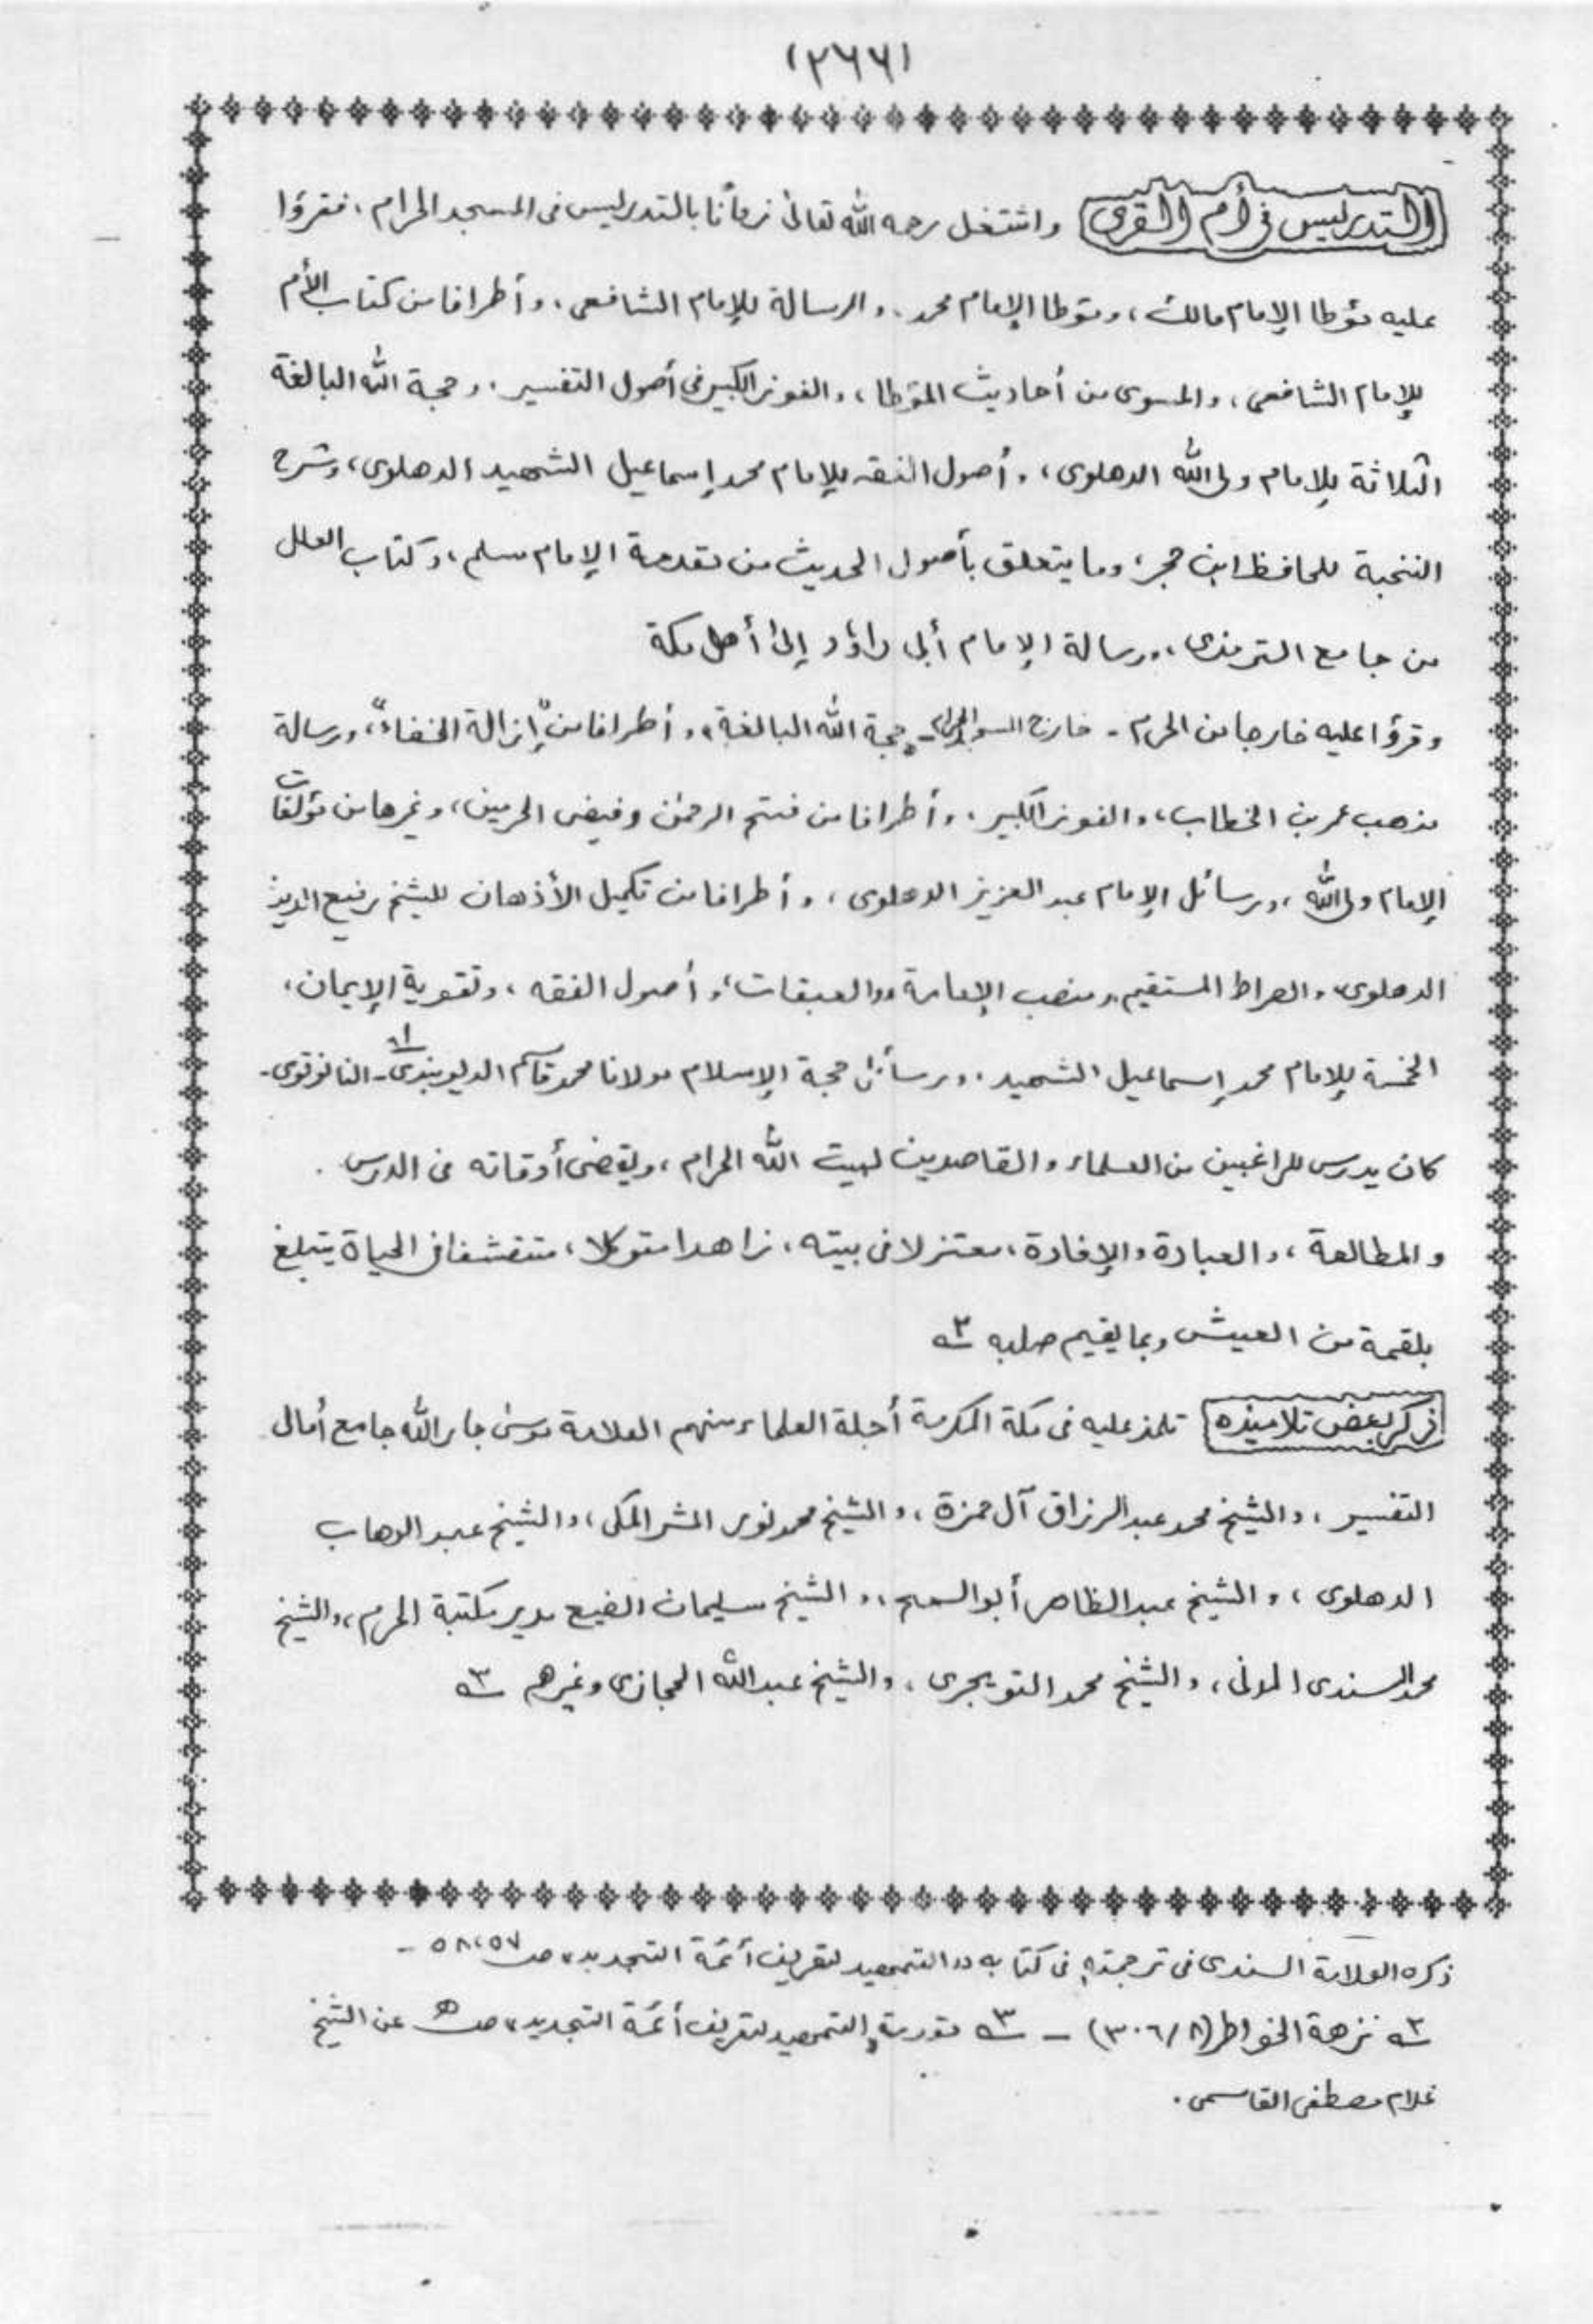 (٢٦٦)
التدريس في أم القرى واشتغل رحمه الله تعالىٰ زمانًا بالتدريس فى المسجد الحرام، فقرؤا
عليه مؤطا الإمام مالك، ومؤطا الإمام محمد، والرسالة للإمام الشافعى، وأطرافا من كتاب الأم
للإمام الشافعى، والمسوى من أحاديث المؤطا، والفوز الكبير فى أصول التفسير، وحجة الله البالغة
الثلاثة للإمام ولى الله الدهلوى، وأصول الفقه للإمام محمد إسماعيل الشهيد الدهلوى، وشرح
النخبة للحافظ ابن حجر، وما يتعلق بأصول الحديث من مقدمة الإمام مسلم، وكتاب العلل
من جامع الترمذى، ورسالة الإمام أبى داؤد إلىٰ أهل مكة
وقرؤا عليه خارجا من الحرم - خارج السور - حجة الله البالغة، وأطرافا من "إزالة الخفاء"، ورسالة
مذهب عمر بن الخطاب، والفوز الكبير، وأطرافا من فتح الرحمٰن وفيض الحرمين، وغيرها من مؤلفات
الإمام ولى الله، ورسائل الإمام عبد العزيز الدهلوى، وأطرافا من تكميل الأذهان للشيخ رفيع الدين
الدهلوى، والصراط المستقيم، ومنصب الإمامة، والعبقات، وأصول الفقه، وتقوية الإيمان،
الخمسة للإمام محمد إسماعيل الشهيد، ورسائل حجة الإسلام مولانا محمد قاسم الديوبندى - النانوتوى - ١ه
كان يدرس للراغبين من العلماء والقاصدين لبيت الله الحرام، ويقضى أوقاته فى الدرس.
والمطالعة، والعبادة والإفادة، معتزلا فى بيته، زاهدا متوكلا، متقشفا فى الحياة يتبلغ
بلقمة من العيش وبما يقيم صلبه ٢ه
ذكر بعض تلاميذه تلمذ عليه فى مكة المكرمة أجلة العلماء منهم العلامة موسىٰ جار الله جامع أمالى
التفسير، والشيخ محمد عبد الرزاق آل حمزة، والشيخ محمد نور المشر المكى، والشيخ عبد الوهاب
الدهلوى، والشيخ عبد الظاهر أبو السمح، والشيخ سليمان الصنيع مدير مكتبة الحرم، والشيخ
محمد السندى المدنى، والشيخ محمد التويجرى، والشيخ عبد الله الحجازى وغيرهم ٣ه
ذكره العلامة السندى فى ترجمته فى كتابه "التمهيد لتعريف أئمة التجديد" ص ٥٧، ٥٨ -
٢ه نزهة الخواطر (٨/٣٠٦) - ٣ه مقدمة "التمهيد لتعريف أئمة التجديد" ص عن الشيخ
غلام مصطفى القاسمى.